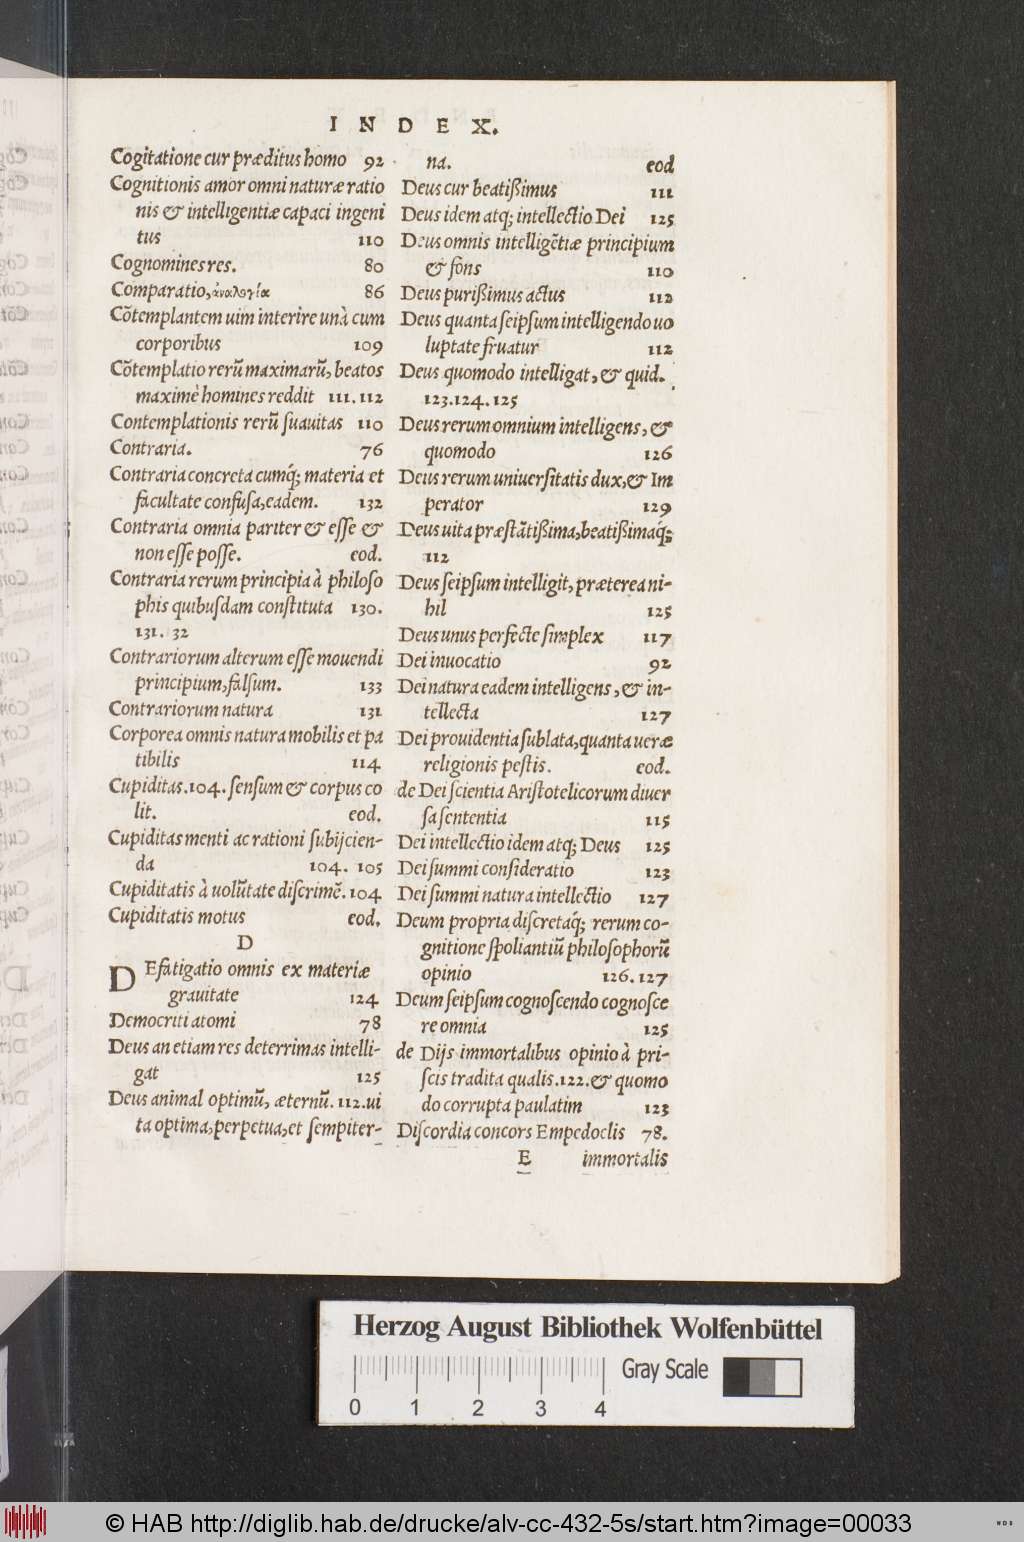 INDEX.
Cogitatione cur præditus homo 92
Cognitionis amor omni naturæ ratio
nis & intelligentiæ capaci ingeni
tus 110
Cognomines res. 80
Comparatio, ἀναλογία 86
Cōtemplantem uim interire unà cum
corporibus 109
Cōtemplatio rerū maximarū, beatos
maximè homines reddit 111. 112
Contemplationis rerū suauitas 110
Contraria. 76
Contraria concreta cumq́; materia et
facultate confusa, eadem. 132
Contraria omnia pariter & esse &
non esse posse. eod.
Contraria rerum principia à philoso
phis quibusdam constituta 130.
131. 32
Contrariorum alterum esse mouendi
principium, falsum. 133
Contrariorum natura 131
Corporea omnis natura mobilis et pa
tibilis 114
Cupiditas. 104. sensum & corpus co
lit. eod.
Cupiditas menti ac rationi subijcien-
da 104. 105
Cupiditatis à uolūtate discrimē. 104
Cupiditatis motus eod.
D
DEfatigatio omnis ex materiæ
grauitate 124
Democriti atomi 78
Deus an etiam res deterrimas intelli-
gat 125
Deus animal optimū, æternū. 112. ui
ta optima, perpetua, et sempiter-
na. eod
Deus cur beatißimus 111
Deus idem atq; intellectio Dei 125
Deus omnis intelligētiæ principium
& fons 110
Deus purißimus actus 112
Deus quanta seipsum intelligendo uo
luptate fruatur 112
Deus quomodo intelligat, & quid.
123. 124. 125
Deus rerum omnium intelligens, &
quomodo 126
Deus rerum uniuersitatis dux, & Im
perator 129
Deus uita præstātißima, beatißimaq́;
112
Deus seipsum intelligit, præterea ni-
hil 125
Deus unus perfecte simplex 117
Dei inuocatio 92
Dei natura eadem intelligens, & in-
tellecta 127
Dei prouidentia sublata, quanta ueræ
religionis pestis. eod.
de Dei scientia Aristotelicorum diuer
sa sententia 115
Dei intellectio idem atq; Deus 125
Dei summi consideratio 123
Dei summi natura intellectio 127
Deum propria discretaq́; rerum co-
gnitione spoliantiū philosophorū
opinio 126. 127
Deum seipsum cognoscendo cognosce
re omnia 125
de Dijs immortalibus opinio à pri-
scis tradita qualis. 122. & quomo
do corrupta paulatim 123
Discordia concors Empedoclis 78.
E immortalis
Herzog August Bibliothek Wolfenbüttel
Gray Scale
0 1 2 3 4
© HAB http://diglib.hab.de/drucke/alv-cc-432-5s/start.htm?image=00033